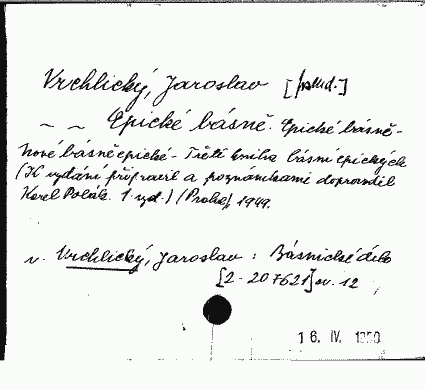 Vrchlický, Jaroslav [pseud.]
~ ~ Epické básně. Epické básně -
Nové básně epické - Třetí kniha básní epických
(K vydání připravil a poznámkami doprovodil
Karel Polák. 1. vyd.) (Praha) 1949.
v. Vrchlický, Jaroslav : Básnické dílo
[2 - 207621] sv. 12
16. IV. 1950